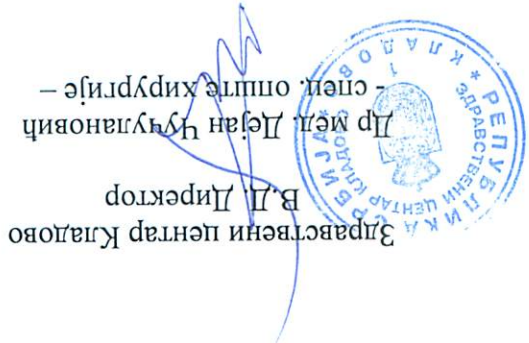 Здравствени центар Кладово
В.Д. Директор
Др мед. Дејан Чучулановић
- спец. опште хирургије –
РЕПУБЛИКА СРБИЈА
* КЛАДОВО *
ЗДРАВСТВЕНИ ЦЕНТАР КЛАДОВО
1